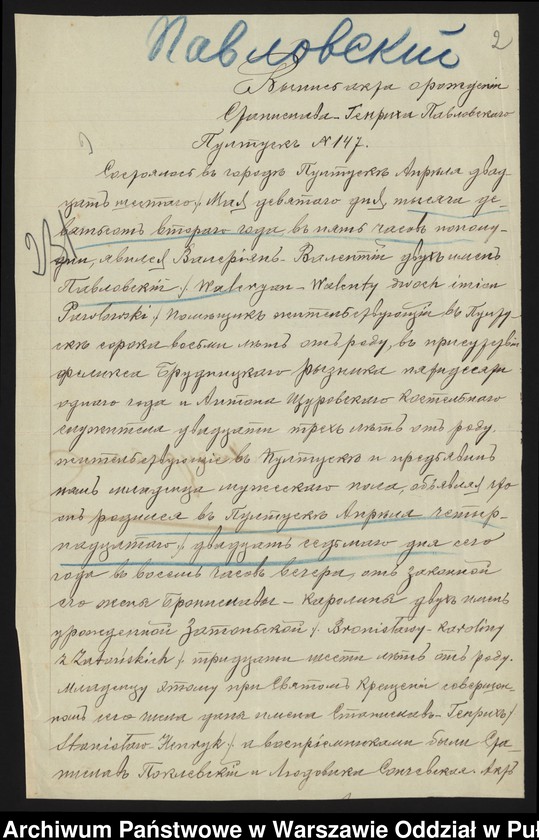 Павловскій
2
Выпись акта о рожденіи
Станислава-Генриха Павловскаго
Пултускъ № 147.
Состоялось въ городѣ Пултускѣ Апрѣля двад-
цать шестаго / Мая девятаго дня, тысяча де-
вятьсотъ втораго года въ пять часовъ пополу-
дни, явился Валеріянъ-Валентій двухъ именъ
Павловскій / Waleryan-Walenty dwoch imion
Pawłowski / помощикъ жительствующій въ Пулту-
скѣ сорока восьми лѣтъ отъ роду, въ присутствіи
Феликса Брудницкаго рѣзника пятидесяти
одного года и Антона Щуровскаго костельнаго
служителя двадцати трехъ лѣтъ отъ роду,
жительствующіе въ Пултускѣ и предъявилъ
намъ младенца мужескаго пола, объявляя что
онъ родился въ Пултускѣ Апрѣля четыр-
надцатаго / двадцать седьмаго дня сего
года въ восемь часовъ вечера, отъ законной
его жены Брониславы-Каролины двухъ именъ
урожденной Затонской / Bronisławy-Karoliny
z Zatońskich / тридцати шести лѣтъ отъ роду.
Младенцу этому при Святомъ Крещеніи совершон-
номъ сего числа даны имена Станиславъ-Генрихъ /
Stanisław Henryk / а воспріемниками были Ста-
ниславъ Поклевскій и Людовика Сончевская. Актъ
Archiwum Państwowe w Warszawie Oddział w Puł